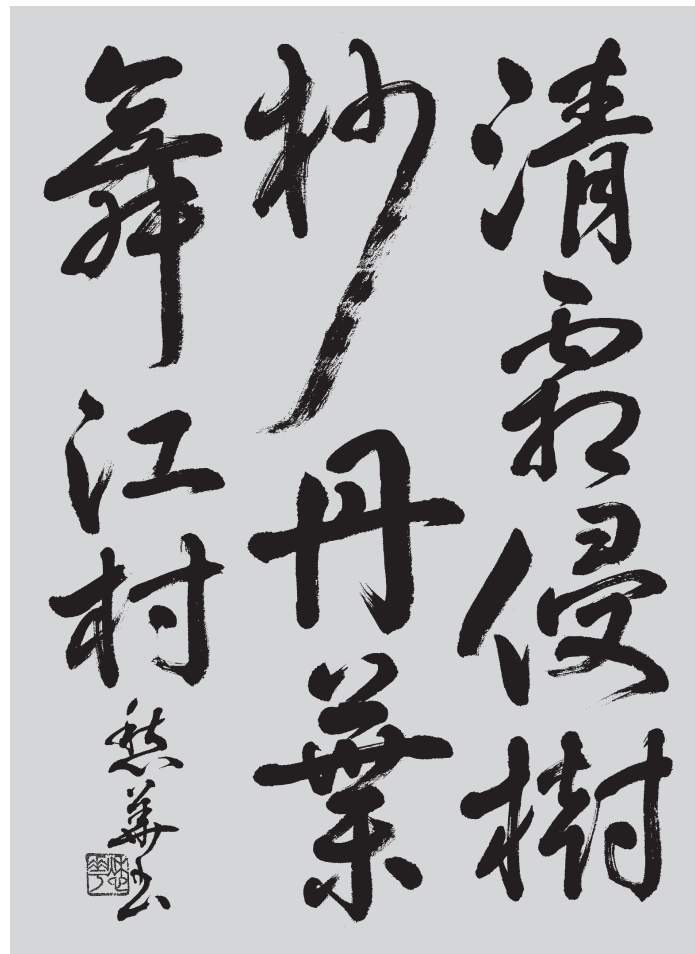 清霜侵樹
杪丹葉
舞江村
愁華書